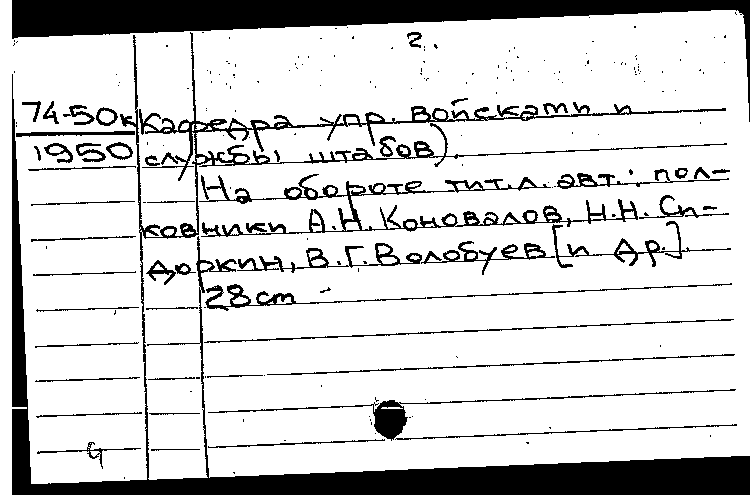 2.
74-50к Кафедра упр. войсками и
1950 службы штабов).
На обороте тит.л. авт.: пол-
ковники А.Н. Коновалов, Н.Н. Си-
доркин, В.Г. Волобуев [и др.].
28 cm